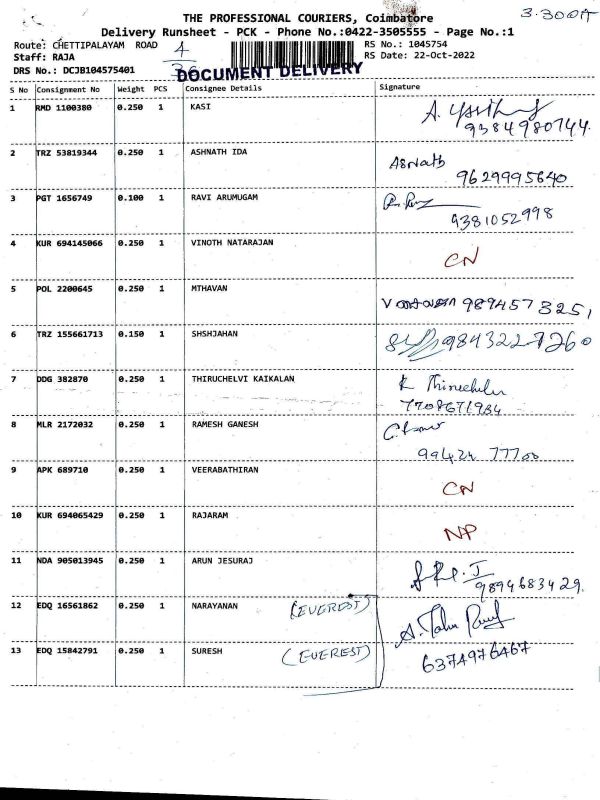 THE PROFESSIONAL COURIERS, Coimbatore
Delivery Runsheet - PCK - Phone No.:0422-3505555 - Page No.:1
Route: CHETTIPALAYAM ROAD
RS No.: 1045754
Staff: RAJA
4
RS Date: 22-Oct-2022
DRS No.: DCJB104575401
DOCUMENT DELIVERY
S No Consignment No Weight PCS Consignee Details Signature
1 RMD 1100380 0.250 1 KASI
9384980744.
2 TRZ 53819344 0.250 1 ASHNATH IDA ASNath
9629995640
3 PGT 1656749 0.100 1 RAVI ARUMUGAM
9381052998
4 KUR 694145066 0.250 1 VINOTH NATARAJAN CN
5 POL 2200645 0.250 1 MTHAVAN
9894573251
6 TRZ 155661713 0.150 1 SHSHJAHAN
9843227260
7 DDG 382870 0.250 1 THIRUCHELVI KAIKALAN
7708671984
8 MLR 2172032 0.250 1 RAMESH GANESH
99424 77700
9 APK 689710 0.250 1 VEERABATHIRAN CN
10 KUR 694065429 0.250 1 RAJARAM NP
11 NDA 905013945 0.250 1 ARUN JESURAJ
9894683429.
12 EDQ 16561862 0.250 1 NARAYANAN (EVEREST)
13 EDQ 15842791 0.250 1 SURESH (EVEREST)
6374976467